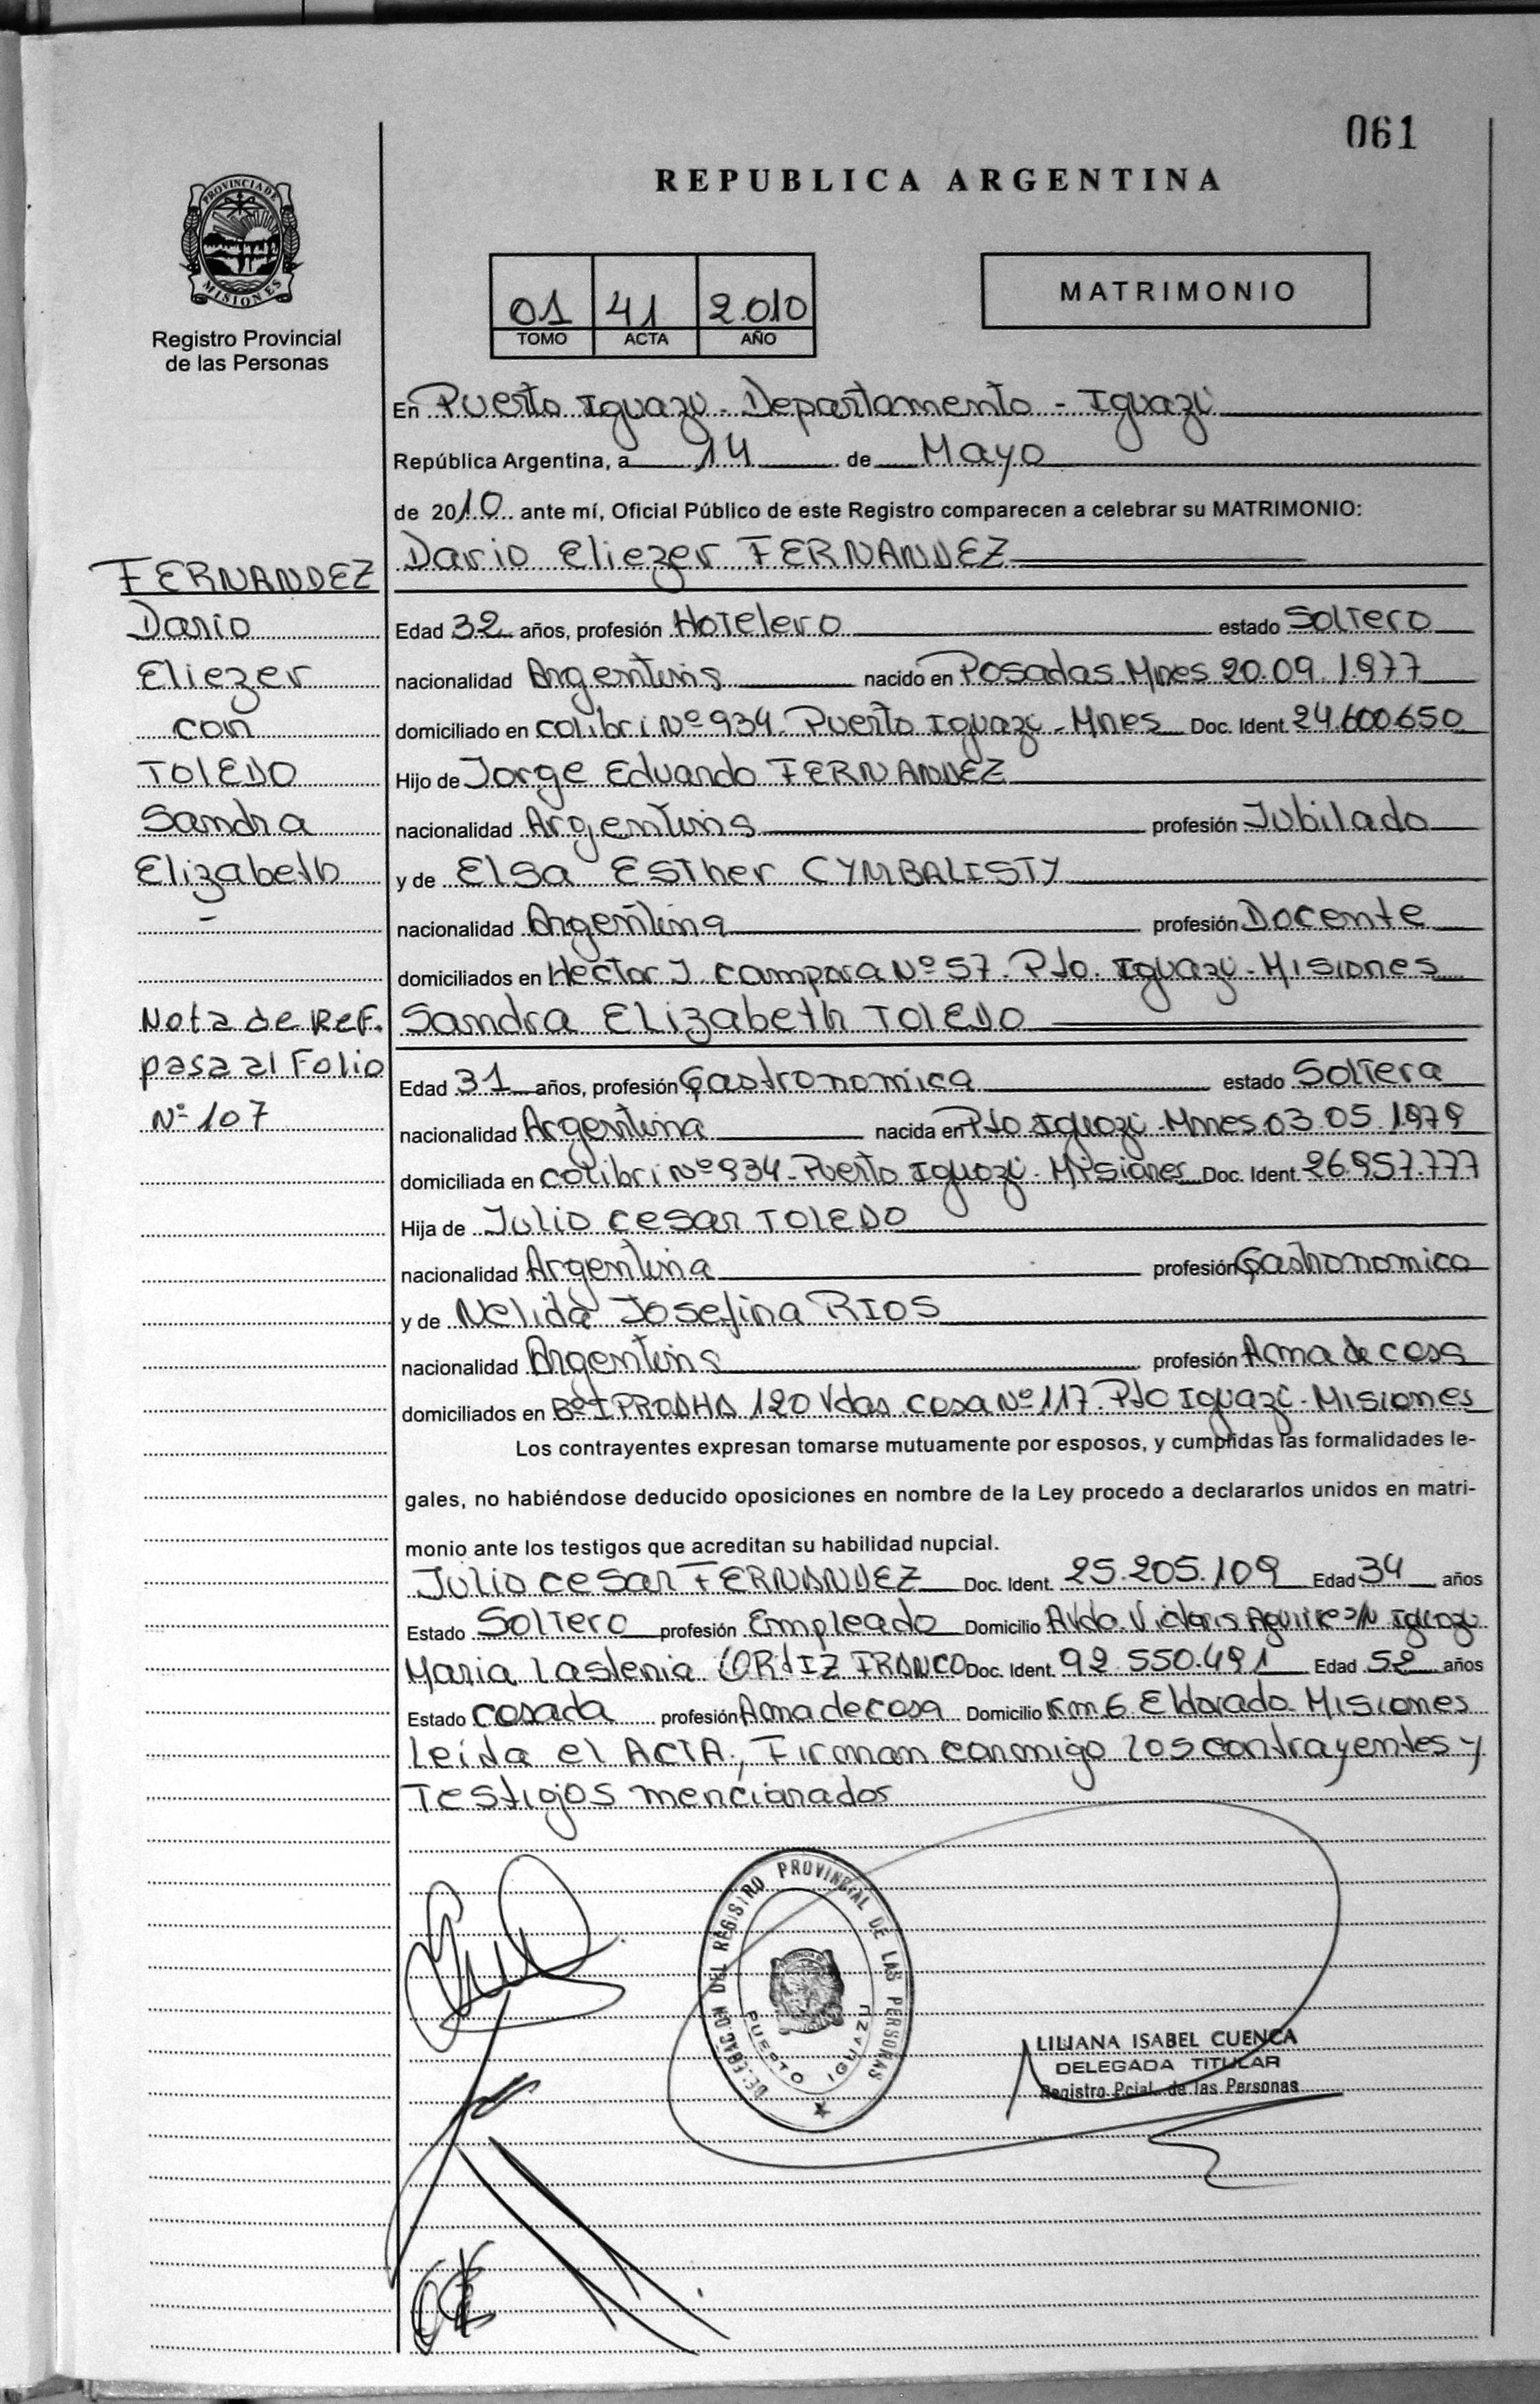 061
REPUBLICA ARGENTINA
PROVINCIA DE
MISIONES
Registro Provincial
de las Personas
01 41 2.010
TOMO ACTA AÑO
MATRIMONIO
En Puerto Iguazú - Departamento - Iguazú
República Argentina, a 14 de Mayo
de 2010 ante mí, Oficial Público de este Registro comparecen a celebrar su MATRIMONIO:
Dario Eliezer FERNANDEZ
Edad 32 años, profesión Hotelero estado Soltero
nacionalidad Argentina nacido en Posadas Mnes 20.09.1977
domiciliado en colibri Nº 934 - Puerto Iguazú - Mnes Doc. Ident. 24.600.650
Hijo de Jorge Eduardo FERNANDEZ
nacionalidad Argentina profesión Jubilado
y de Elsa Esther CYMBALISTY
nacionalidad Argentina profesión Docente
domiciliados en Hector J. campora Nº 57 - Pto. Iguazú - Misiones
Sandra Elizabeth TOLEDO
Edad 31 años, profesión Gastronomica estado Soltera
nacionalidad Argentina nacida en Pto Iguazú - Mnes 03.05.1979
domiciliada en colibri Nº 934 - Puerto Iguazú - Misiones Doc. Ident. 26.957.777
Hija de Julio cesar TOLEDO
nacionalidad Argentina profesión Gastronomico
y de Nelida Josefina RIOS
nacionalidad Argentina profesión Ama de casa
domiciliados en Bº IPRODHA 120 Vdas casa Nº 117 - Pto Iguazú - Misiones
Los contrayentes expresan tomarse mutuamente por esposos, y cumplidas las formalidades le-
gales, no habiéndose deducido oposiciones en nombre de la Ley procedo a declararlos unidos en matri-
monio ante los testigos que acreditan su habilidad nupcial.
Julio cesar FERNANDEZ Doc. Ident. 25.205.109 Edad 34 años
Estado Soltero profesión Empleado Domicilio Avda. Victoria Aguirre s/n Iguazú
Maria Lastenia ORTIZ FRANCO Doc. Ident. 92.550.491 Edad 52 años
Estado casada profesión Ama de casa Domicilio Km 6 Eldorado Misiones
Leída el ACTA, Firman conmigo los contrayentes y
Testigos mencionados
FERNANDEZ
Dario
Eliezer
con
TOLEDO
Sandra
Elizabeth
-
Nota de Ref.
pasa al Folio
Nº 107
DELEGACION DEL REGISTRO PROVINCIAL DE LAS PERSONAS
PUERTO IGUAZU
LILIANA ISABEL CUENCA
DELEGADA TITULAR
Registro Pcial. de las Personas